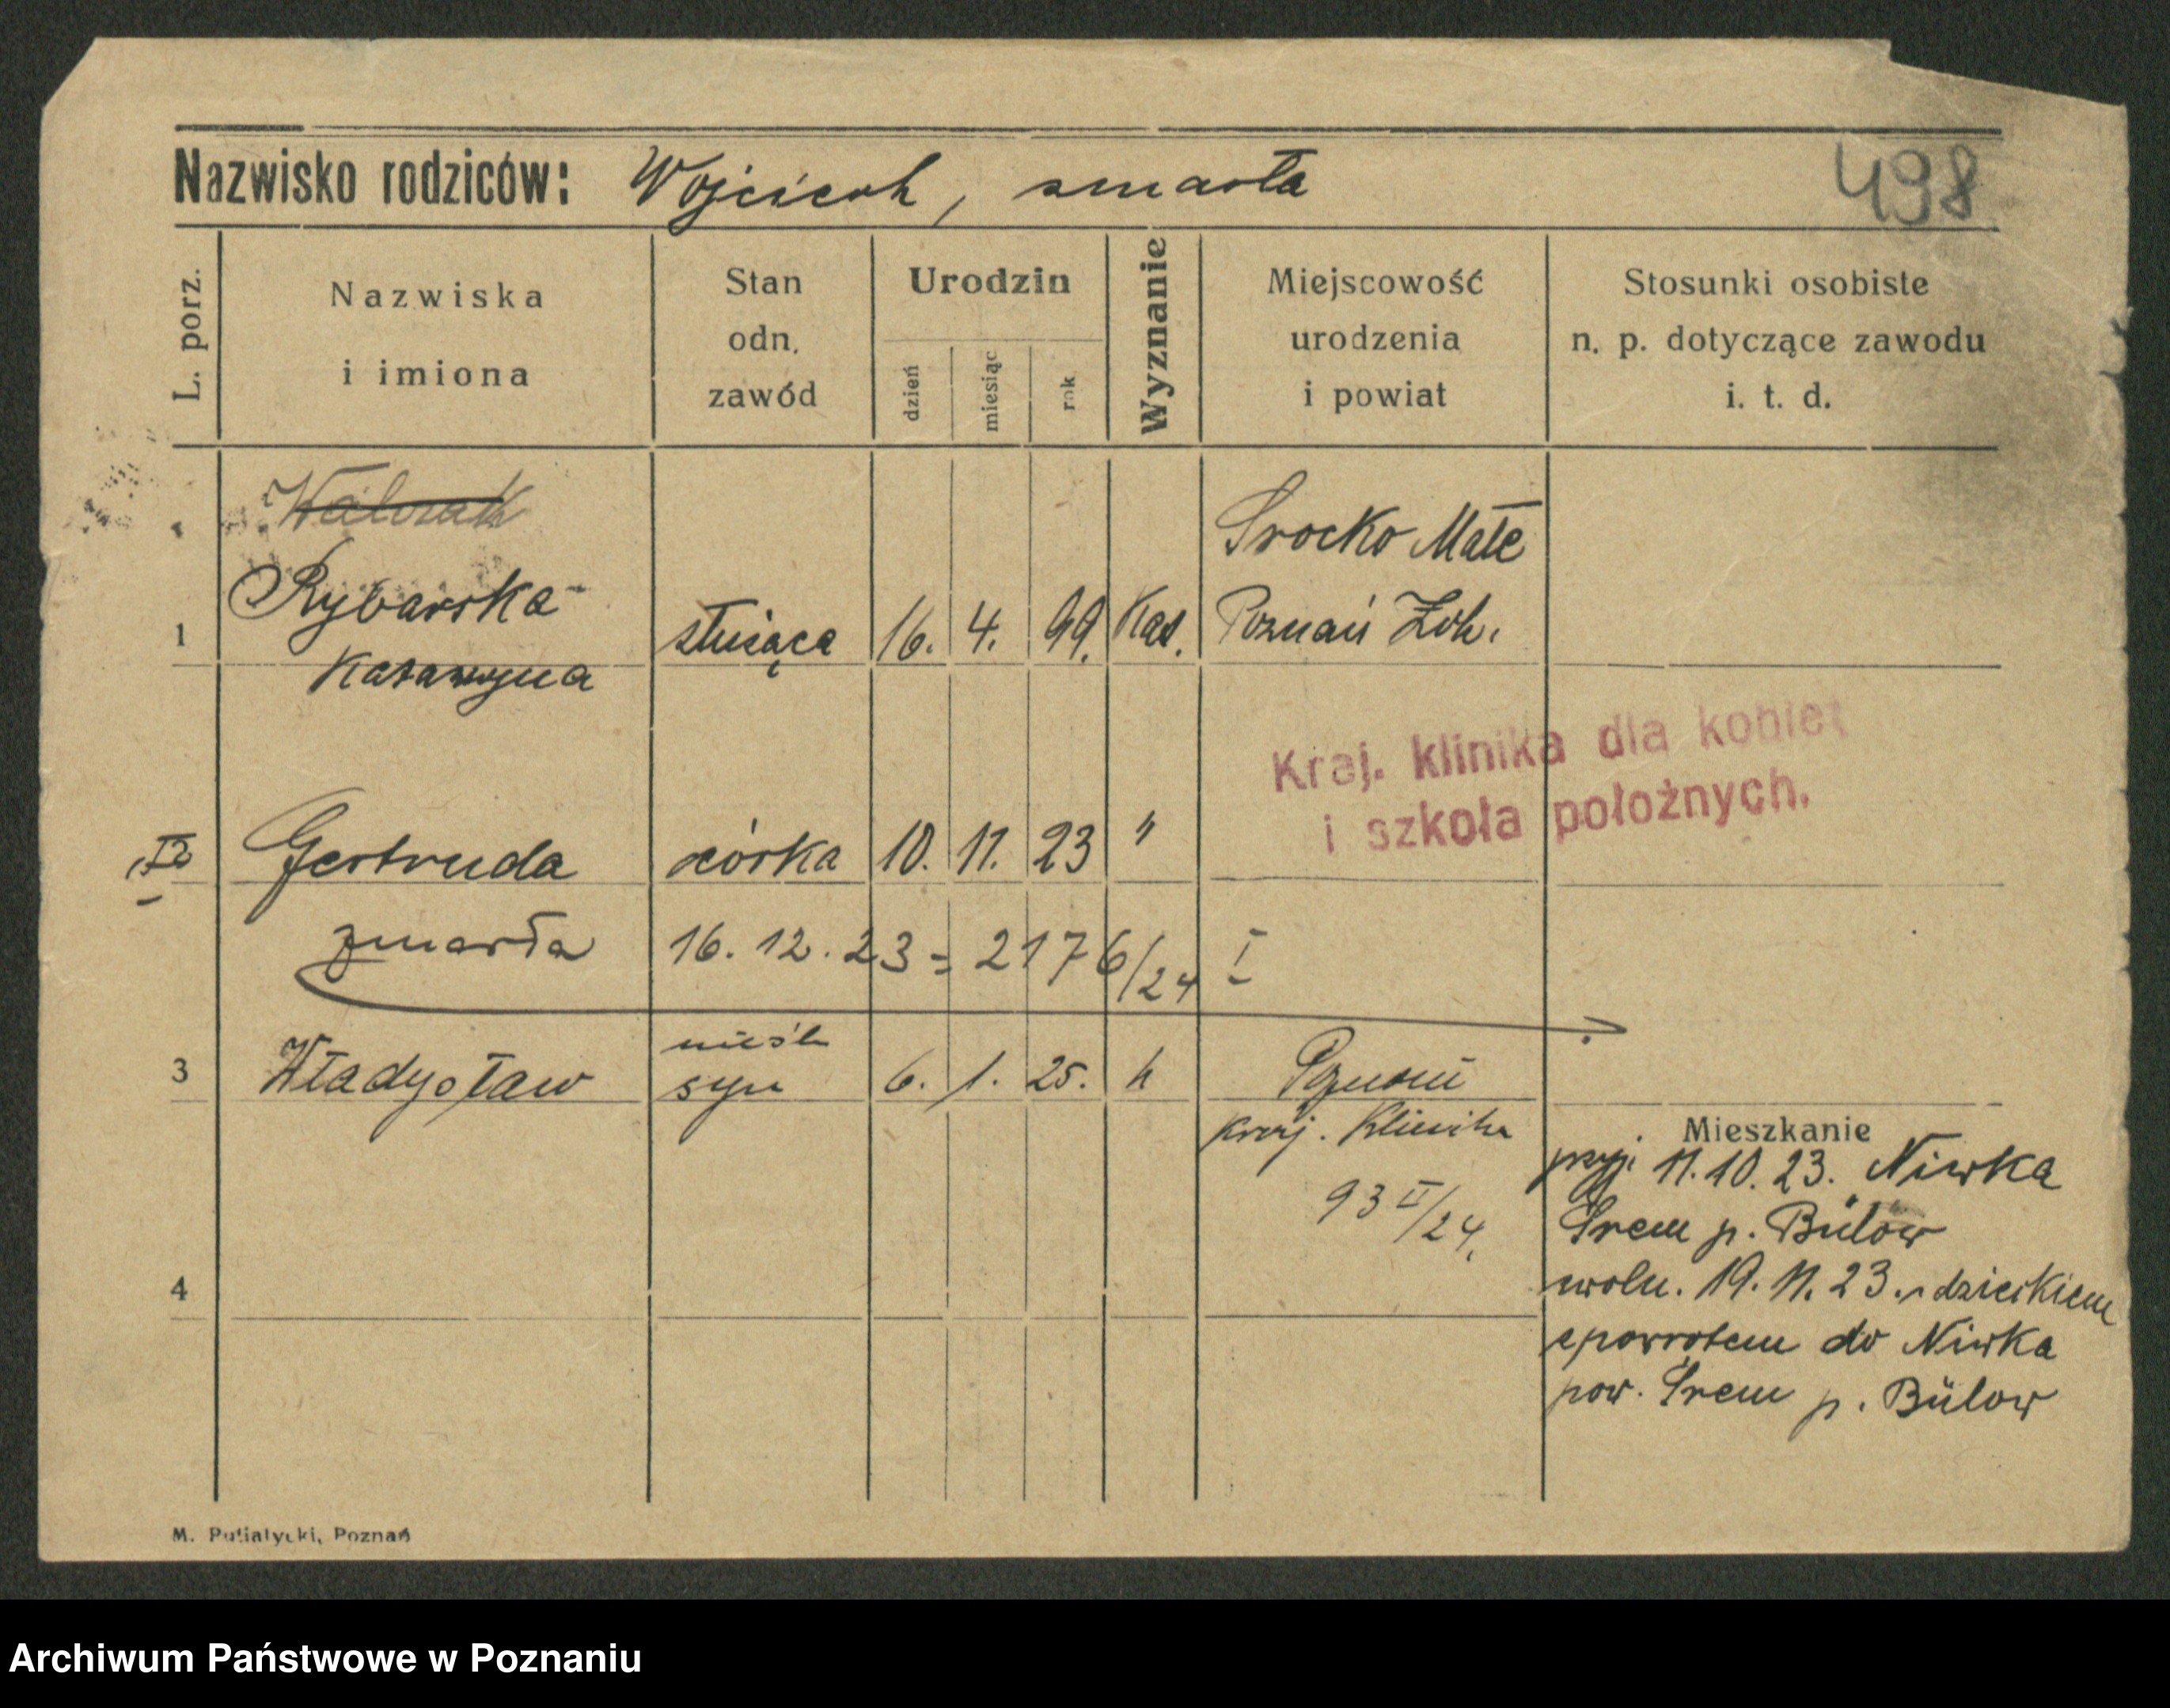 498
Nazwisko rodziców: Wojciech, zmarła
L. porz.
Nazwiska
i imiona
Stan
odn.
zawód
Urodzin
dzień
miesiąc
rok
Wyznanie
Miejscowość
urodzenia
i powiat
Stosunki osobiste
n. p. dotyczące zawodu
i. t. d.
Srocko Małe
1 Rybarska służąca 16. 4. 99. Kat. Poznań Zch.
Katarzyna
Kraj. klinika dla kobiet
i szkoła położnych.
Gertruda córka 10. 11. 23 "
zmarła 16. 12. 23 = 2176/24 I
nieśl
3 Władysław syn 6. 1. 25. " Poznań
kraj. Klinika
93 II/24.
4
Mieszkanie
przyj. 11. 10. 23. Niwka
Śrem p. Bülow
zwoln. 19. 11. 23. z dzieckiem
z powrotem do Niwka
pow. Śrem p. Bülow
M. Putiatycki, Poznań
Archiwum Państwowe w Poznaniu